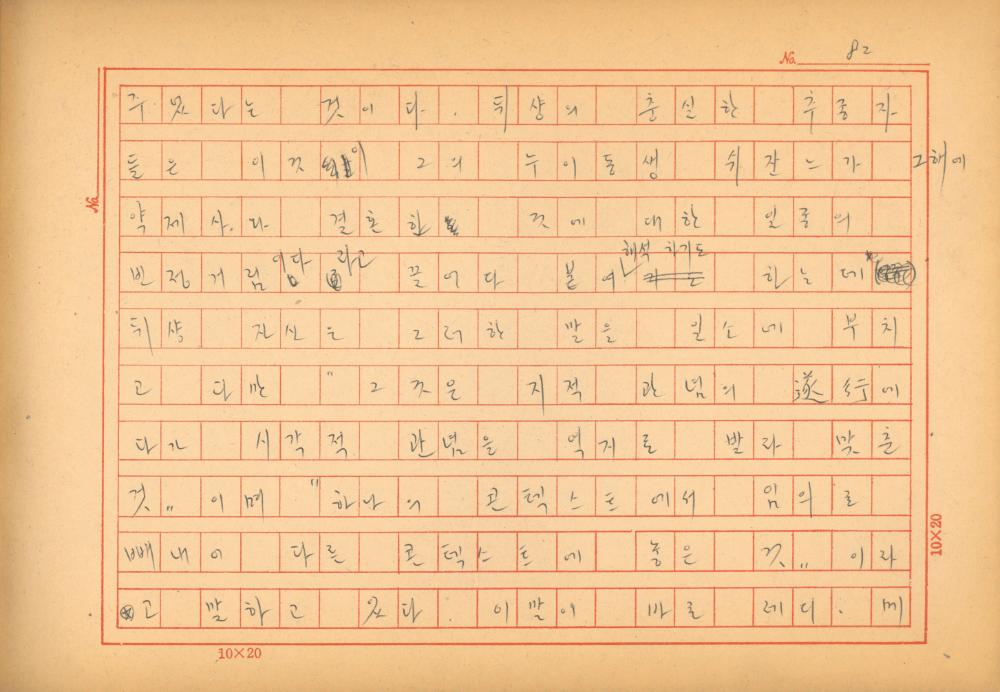 No. 82
주 았다는 것이다. 뒤샹의 충실한 추종자
들은 이것이 그의 누이동생 쉬잔느가 그해에
약제사라 결혼한 것에 대한 일종의
빈정거림이다 라고 끌어다 붙여 해석 하기도 하는데
뒤샹 자신은 그러한 말을 일소에 부치
고 다만 "그것은 지적 관념의 遂行에
다가 시각적 관념을 억지로 발라 맞춘
것" 이며 "하나의 콘텍스트에서 임의로
빼내어 다른 콘텍스트에 놓은 것" 이라
고 말하고 있다. 이 말이 바로 레디·메
No.
10×20
10×20